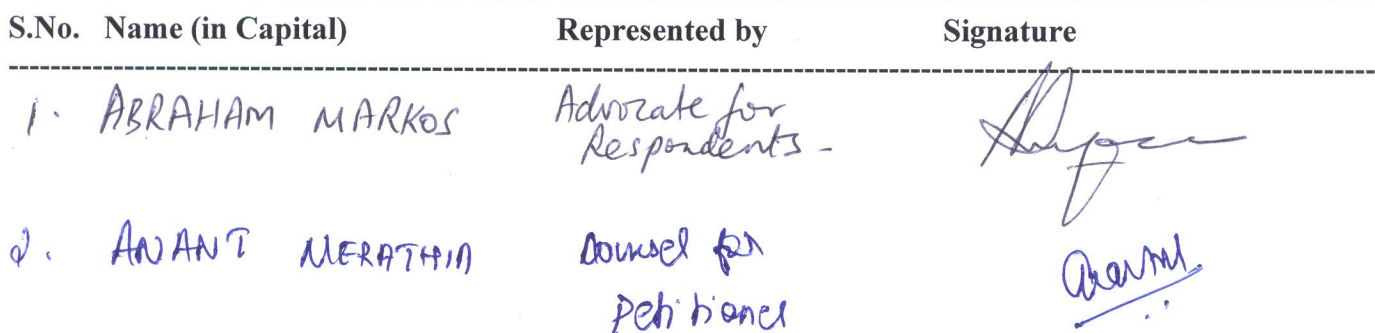 S.No. Name (in Capital) Represented by Signature
1. ABRAHAM MARKOS Advocate for
Respondents -
2. ANANT MERATHIA Counsel for
Petitioner